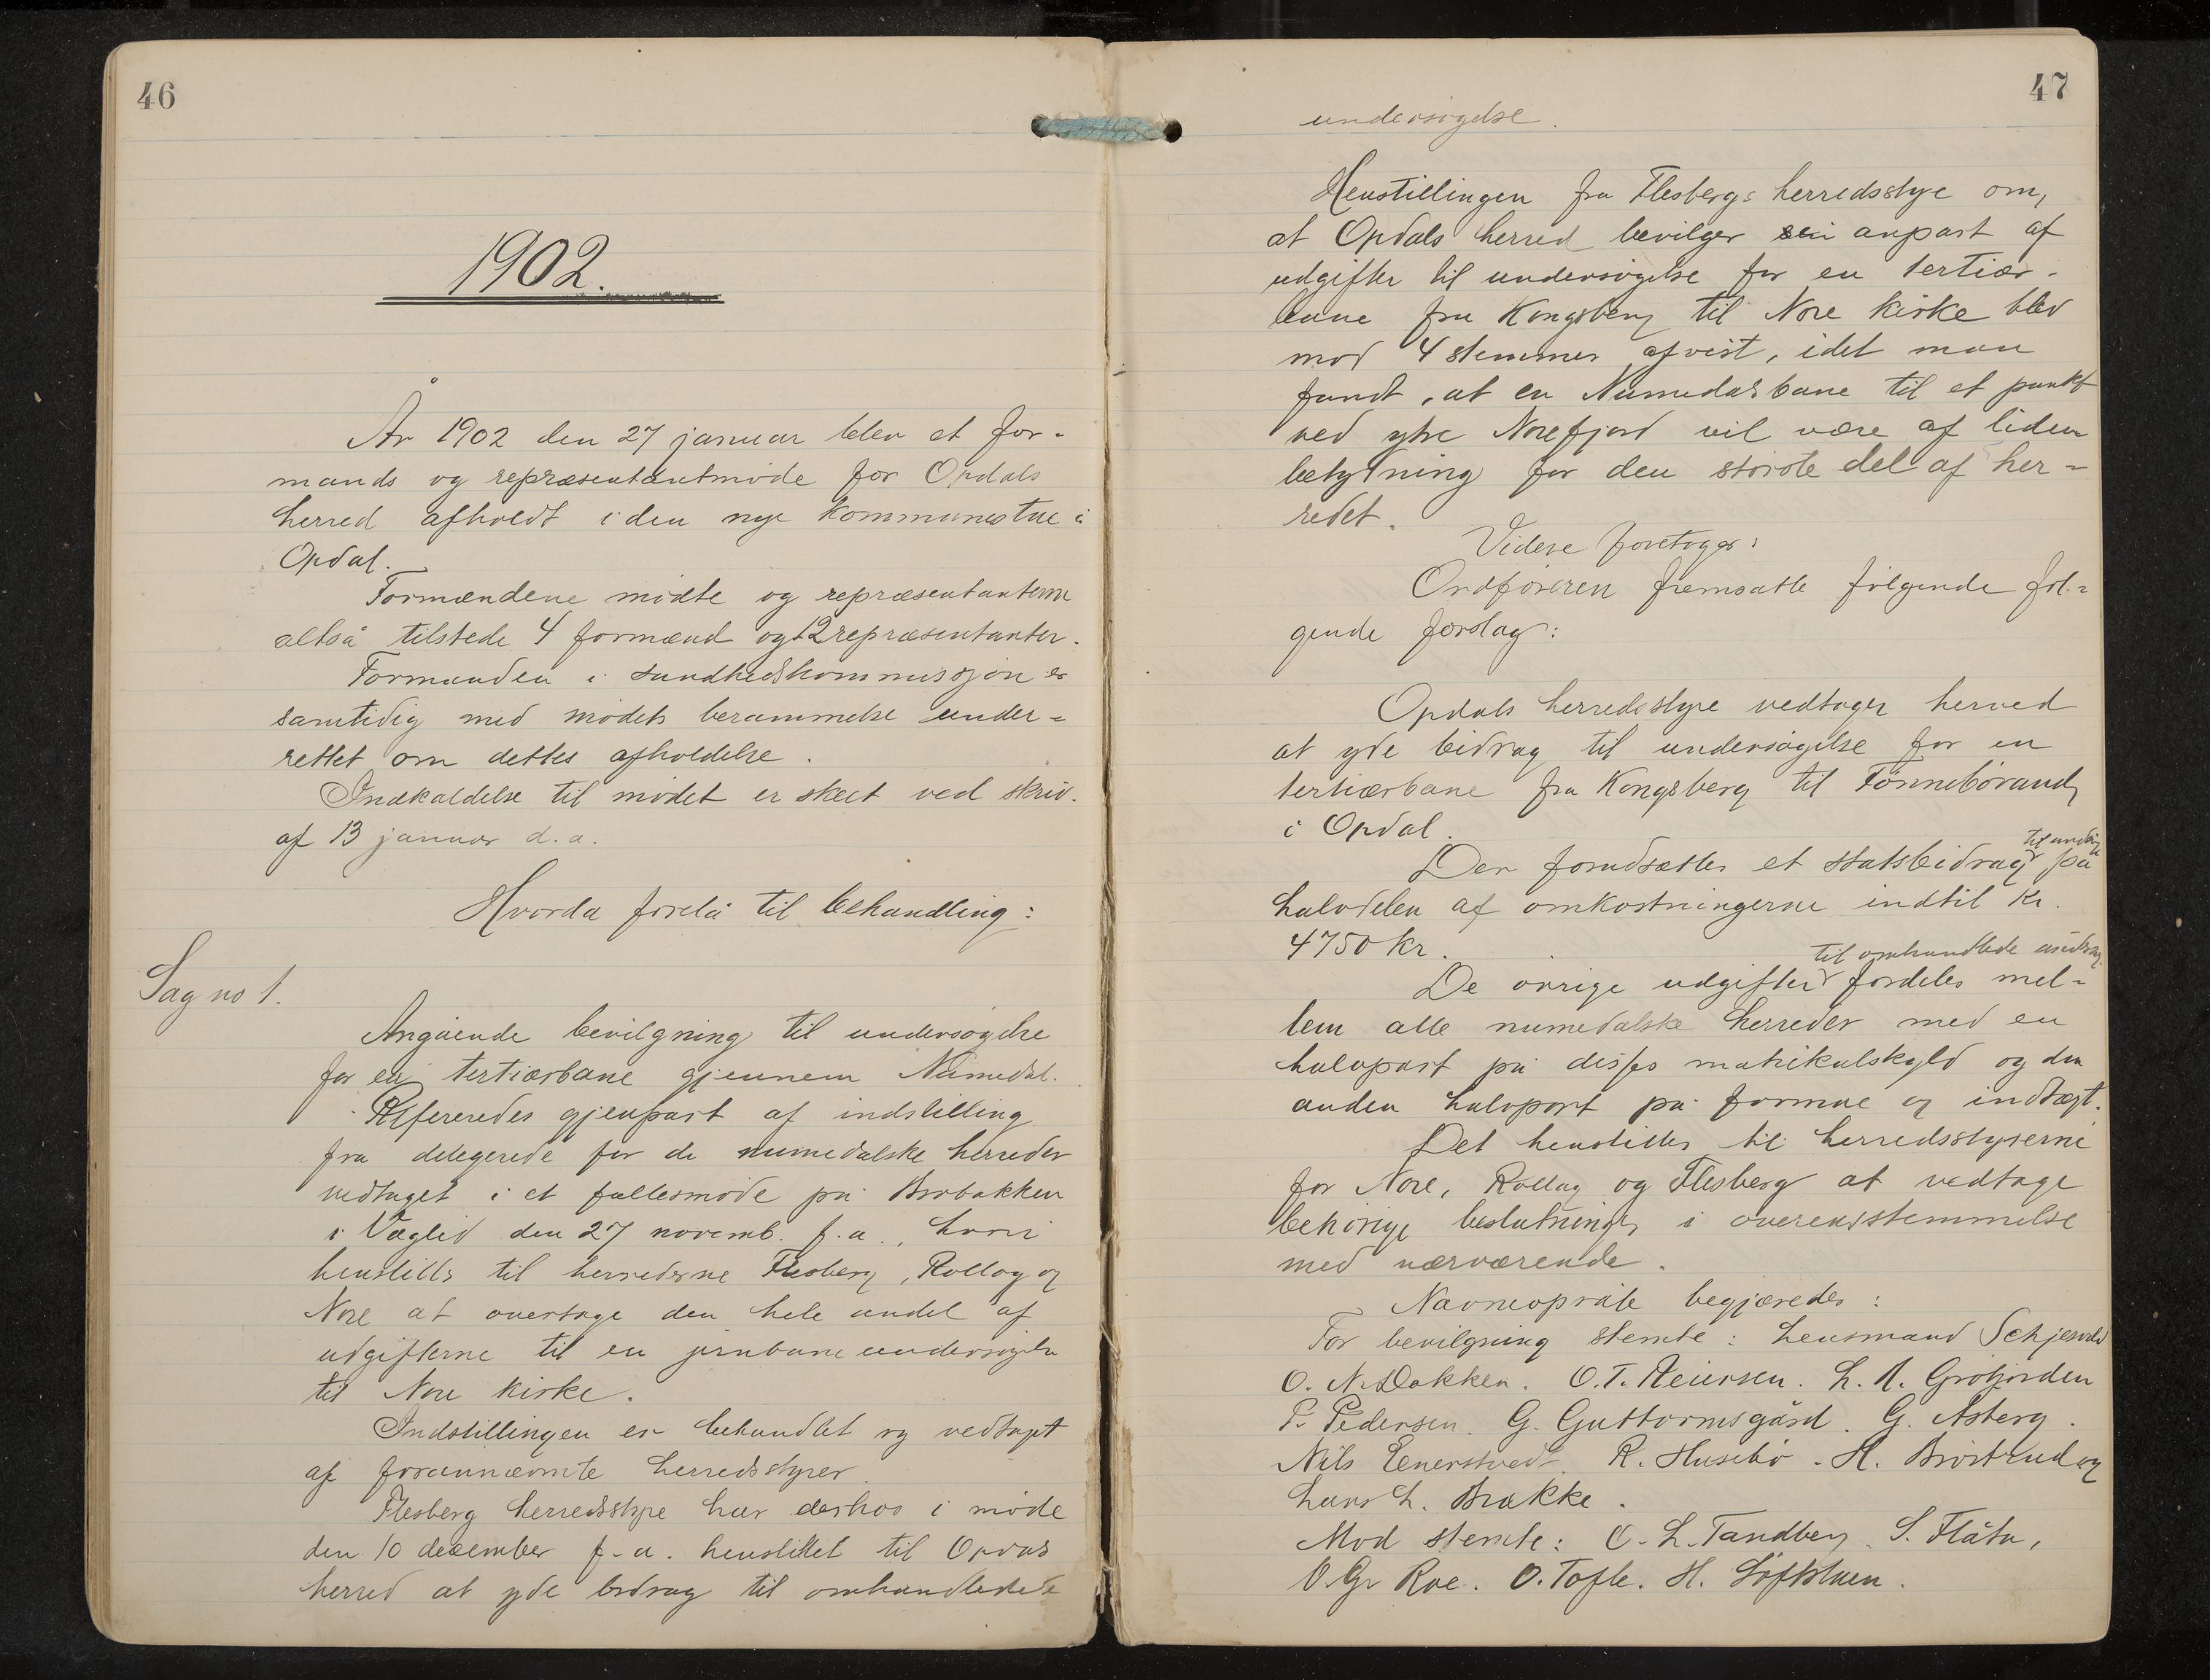 46
1902.
År 1902 den 27 januar blev et for-
mands og repræsentantmöde for Opdals
herred afholdt i den nye kommunestue i
Opdal.
Formændene mödte og repræsentanterne
altså tilstede 4 formænd og 12 repræsentanter.
Formanden i sundhedskommissjon er
samtidig med mödets berammelse under-
rettet om dettes afholdelse.
Indkaldelse til mödet er skeet ved skriv.
af 13 januar d.a.
Hvorda forelå til behandling:
Sag no 1.
Angående bevilgning til undersögelse
for en tertiærbane gjennem Numedal.
Refereredes gjenpart af indstilling
fra delegerede for de numedalske herreder
vedtaget i et fællesmöde på Brobakken
i Væglid den 27 novemb. f.a., hvori
henstilles til herrederne Flesberg, Rollag og
Nore at overtage den hele andel af
udgifterne til en jernbaneundersögelse
til Nore kirke.
Indstillingen er behandlet og vedtaget
af forannævnte herredsstyrer.
Flesberg herredsstyre har derhos i möde
den 10 december f.a. henstillet til Opdals
herred at yde bidrag til omhandlede
47
undersögelse.
Henstillingen fra Flesbergs herredsstyre om,
at Opdals herred bevilger sin anpart af
udgifter til undersögelse for en tertiær-
bane fra Kongsberg til Nore kirke blev
mod 4 stemmer afvist, idet man
fandt, at en Numedalsbane til et punkt
ved ytre Norefjord vil være af liden
betydning for den störste del af her-
redet.
Videre foretoges:
Ordföreren fremsatte fölgende föl-
gende forslag:
Opdals herredsstyre vedtager herved
at yde bidrag til undersögelse for en
tertiærbane fra Kongsberg til Tönnebörand
i Opdal.
til
Der forudsættes et statsbidrag på
halvdelen af omkostningerne indtil kr.
4750 kr.
til omhandlede
De övrige udgifter fordeles mel-
lem alle numedalske herreder med en
halvpart på disses matrikulskyld og den
anden halvpart på formue og indtægt.
Det henstilles til herredsstyrerne
for Nore, Rollag og Flesberg at vedtage
behörige beslutninger i overensstemmelse
med nærværende.
Navneopråb begjæredes:
For bevilgning stemte: lensmand
O. N. Dokken. O.T. Reiersen. L. A. Gröfjorden
P. Pedersen. G. Guttormsgård. G. Åsberg.
Nils Enerstvedt. R. Husebö. H. Brostrud og
Lars L. Brække.
Mod stemte: O. L. Tandberg. S. Flåta,
O. Gr Roe. O. Tofte. H. Löftstuen.